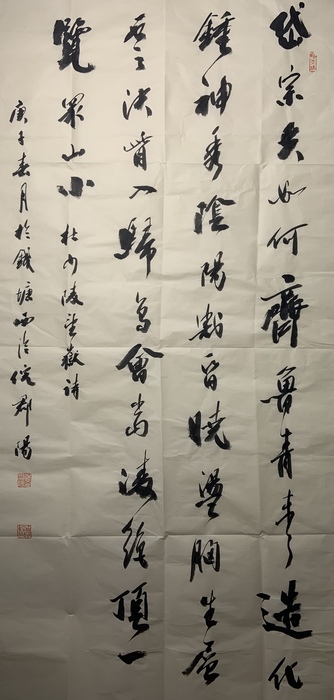 岱宗夫如何齊魯青未了造化
鍾神秀陰陽割昏曉盪胸生層
雲決眥入歸鳥會當凌絕頂一
覽眾山小 杜少陵望嶽詩
庚子春月於錢塘西泠 郡陽